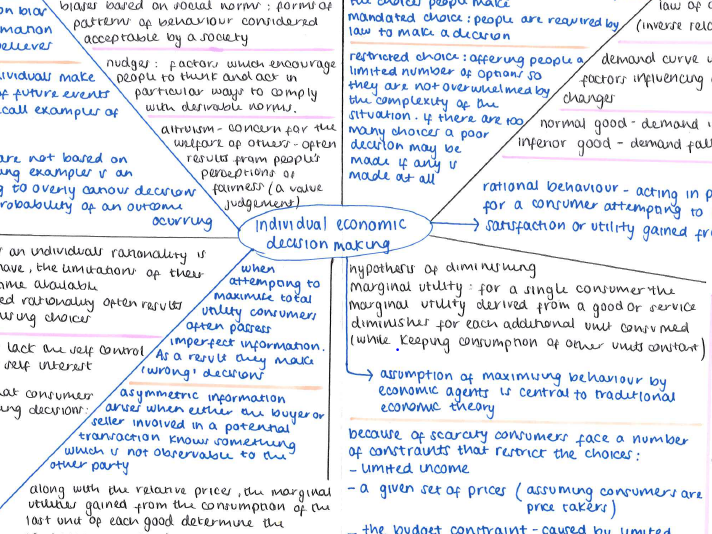 biases based on social norms : forms of
patterns of behaviour considered
acceptable by a society
nudges : factors which encourage
people to think and act in
particular ways to comply
with desirable norms.
altruism - concern for the
welfare of others - often
results from people's
perceptions of
fairness (a value
judgement)
on bias
believers
individuals make
of future events
recall examples of
are not based on
ing examples is an
g to overly cautious decisions
probability of an outcome
ocurring
the choices people make
mandated choice : people are required by
law to make a decision
restricted choice : offering people a
limited number of options so
they are not overwhelmed by
the complexity of the
situation. if there are too
many choices a poor
decision may be
made if any is
made at all
law of
(inverse rel
demand curve
factors influencing
changes
normal good - demand
inferior good - demand fall
rational behaviour - acting in p
for a consumer attempting to
satisfaction or utility gained fr
individual economic
decision making
an individuals rationality is
have, the limitations of their
time available
ed rationality often results
using choices
lack the self control
self interest
at consumer
ing decisions:
when
attempting to
maximise total
utility consumers
often possess
imperfect information.
As a result they make
'wrong' decisions
asymmetric information
arises when either the buyer or
seller involved in a potential
transaction knows something
which is not observable to the
other party
along with the relative prices, the marginal
utilities gained from the consumption of the
last unit of each good determine the
hypothesis of diminishing
marginal utility : for a single consumer the
marginal utility derived from a good or service
diminishes for each additional unit consumed
(while keeping consumption of other units constant)
assumption of maximising behaviour by
economic agents is central to traditional
economic theory
because of scarcity consumers face a number
of constraints that restrict the choices:
- limited income
- a given set of prices (assuming consumers are
price takers)
- the budget constraint - caused by limited